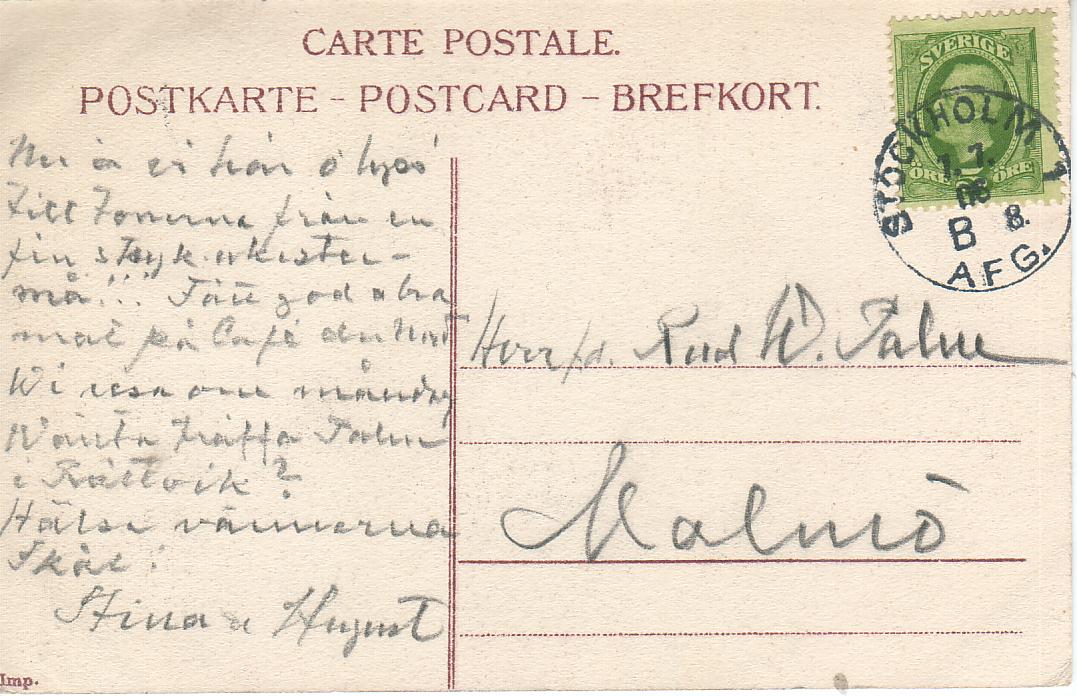 CARTE POSTALE.
POSTKARTE - POSTCARD - BREFKORT.
SVERIGE
ÖRE ÖRE
STOCKHOLM 1
1.7.
08
B 8.
AFG.
Nu ä vi här o
till tonerna från en
fin stryk-orkester-
må!!! Fått god a bra
mat på Café du Nord
Wi resa om måndag
Wänta träffa Palm
i Rättvik?
Hälsa vännerna
Skål!
Stina u August
Herr W. Palm
Malmö
Imp.